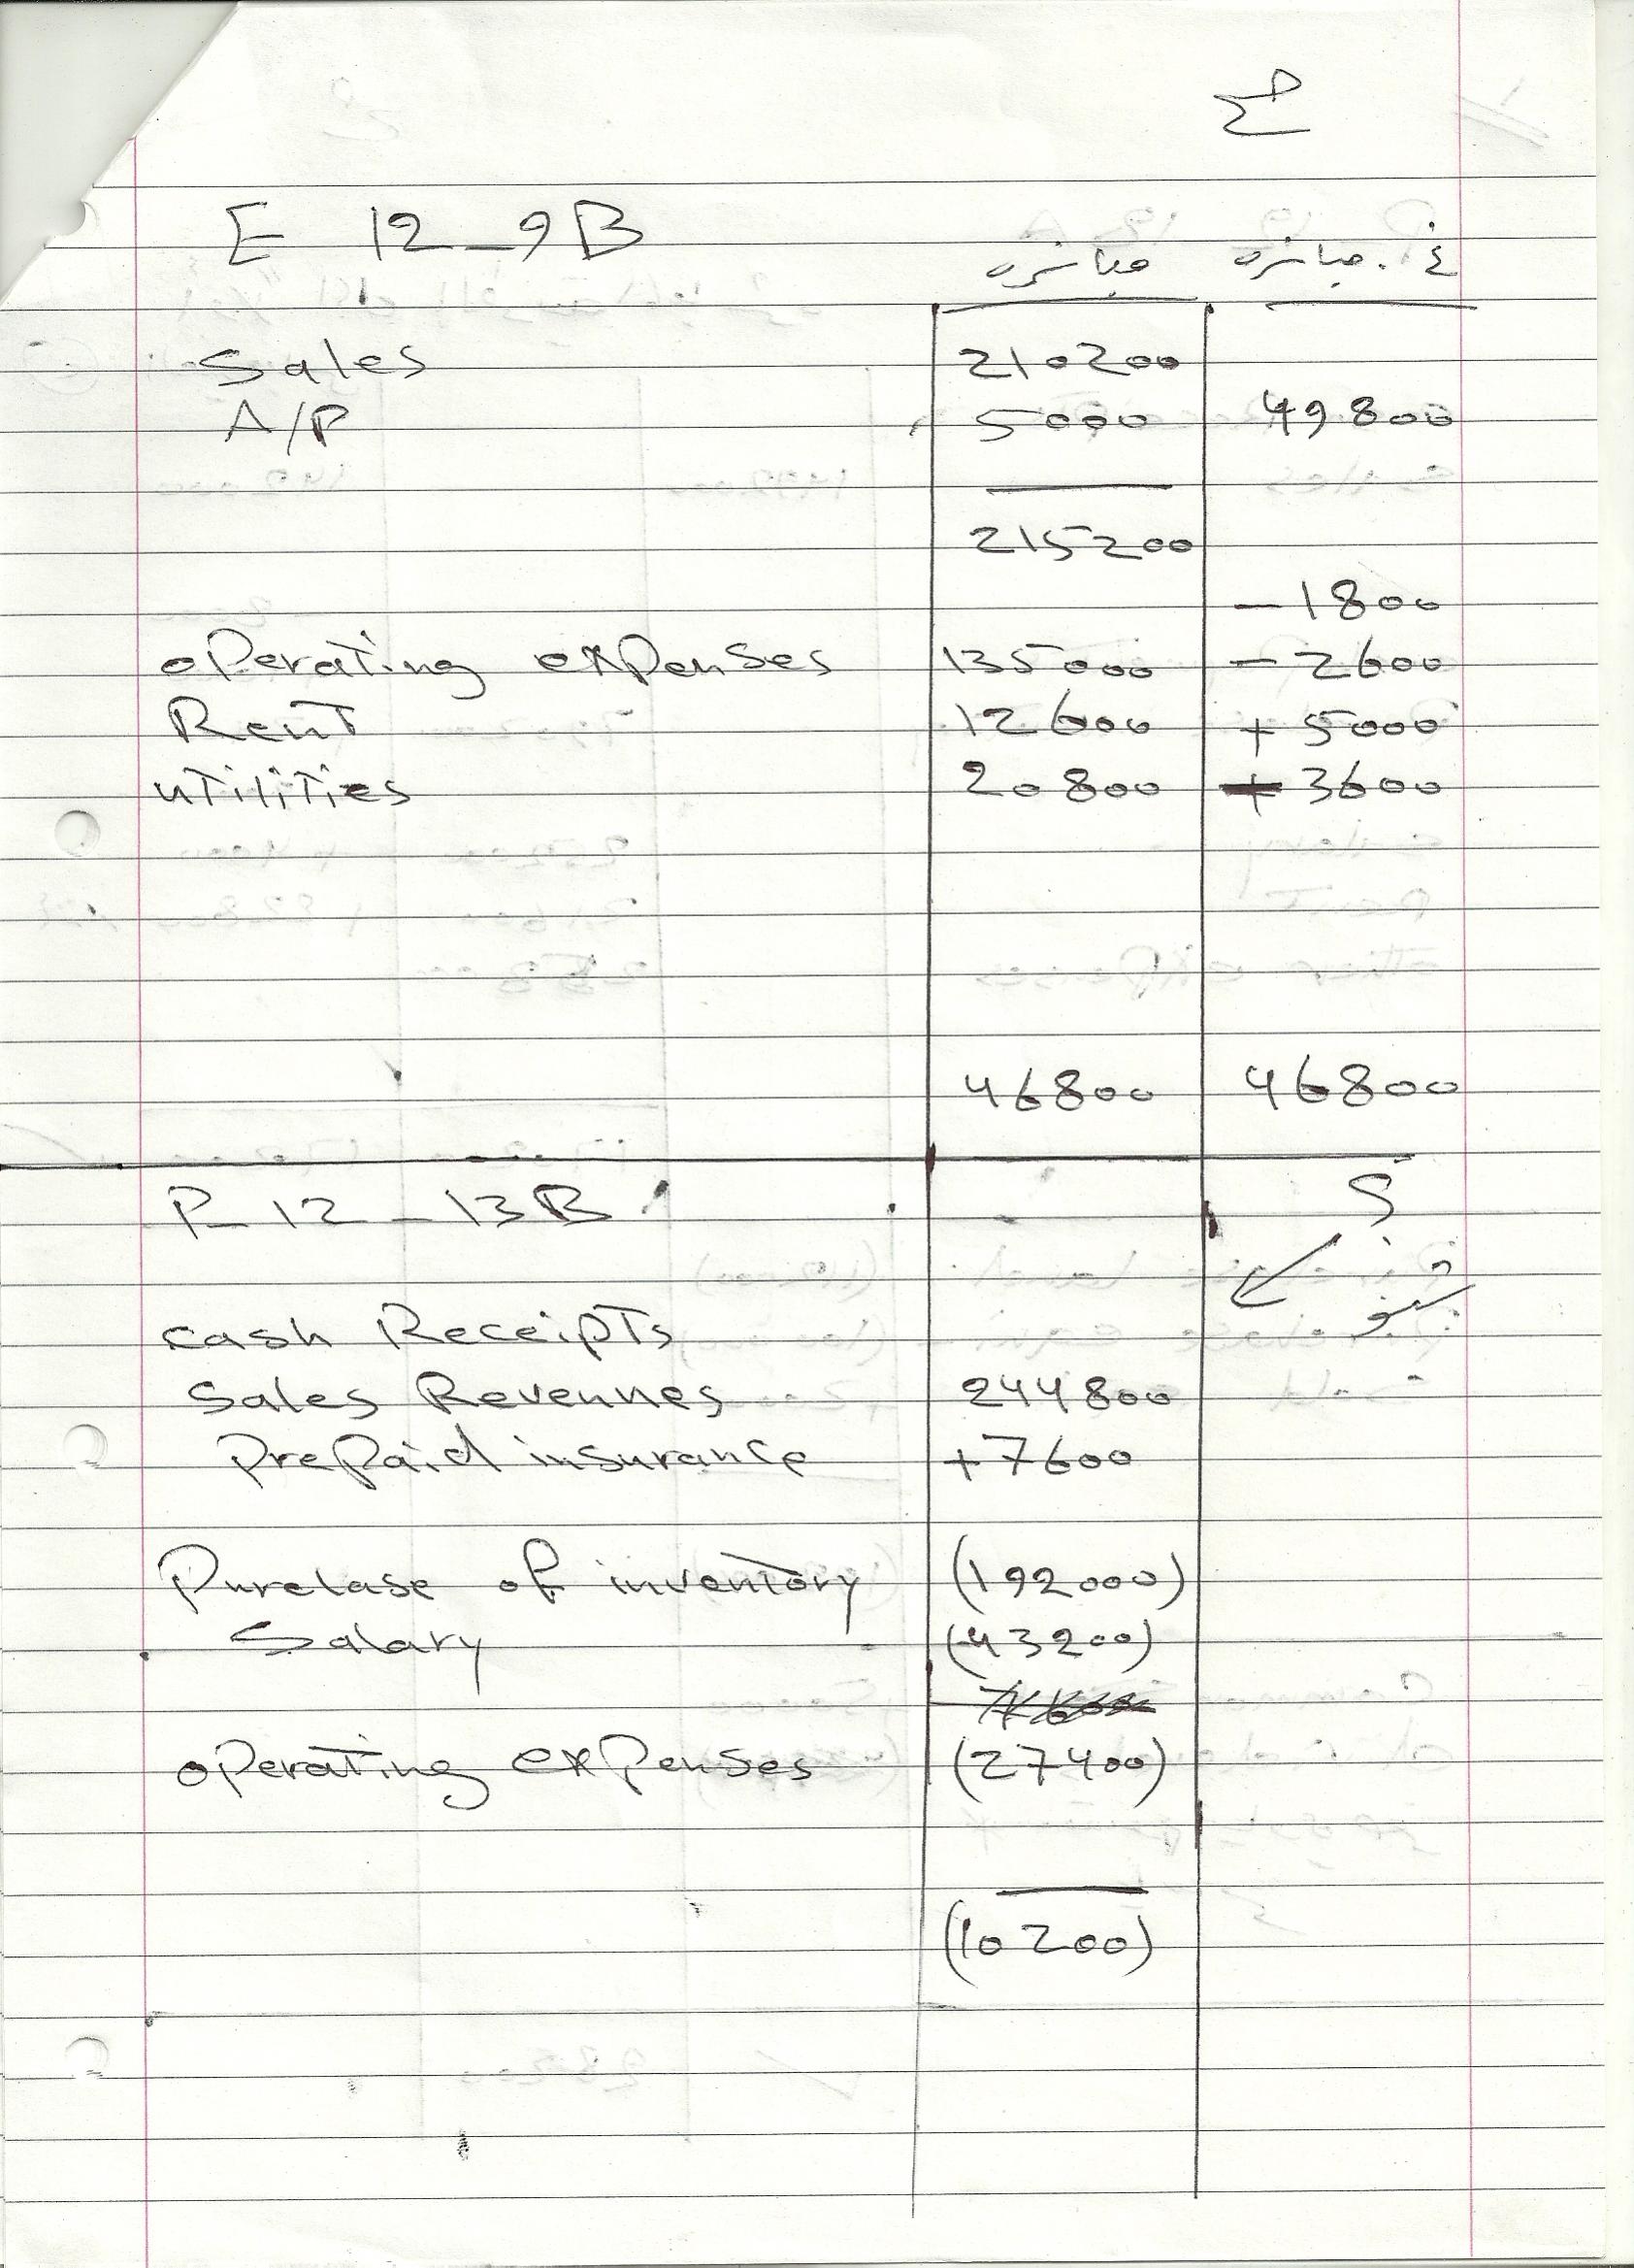 ح
E 12-9B
مباشره غ. مباشره
Sales 210200
A/P 5000 49800
215200
-1800
operating expenses 135000 -2600
Rent 12600 +5000
utilities 20800 - 3600
46800 46800
P-12-13B
؟
cash Receipts
Sales Revennes 244800
Prepaid insurance +7600
Purclase of inventory (192000)
Salary (43200)
operating expenses (27400)
(10200)